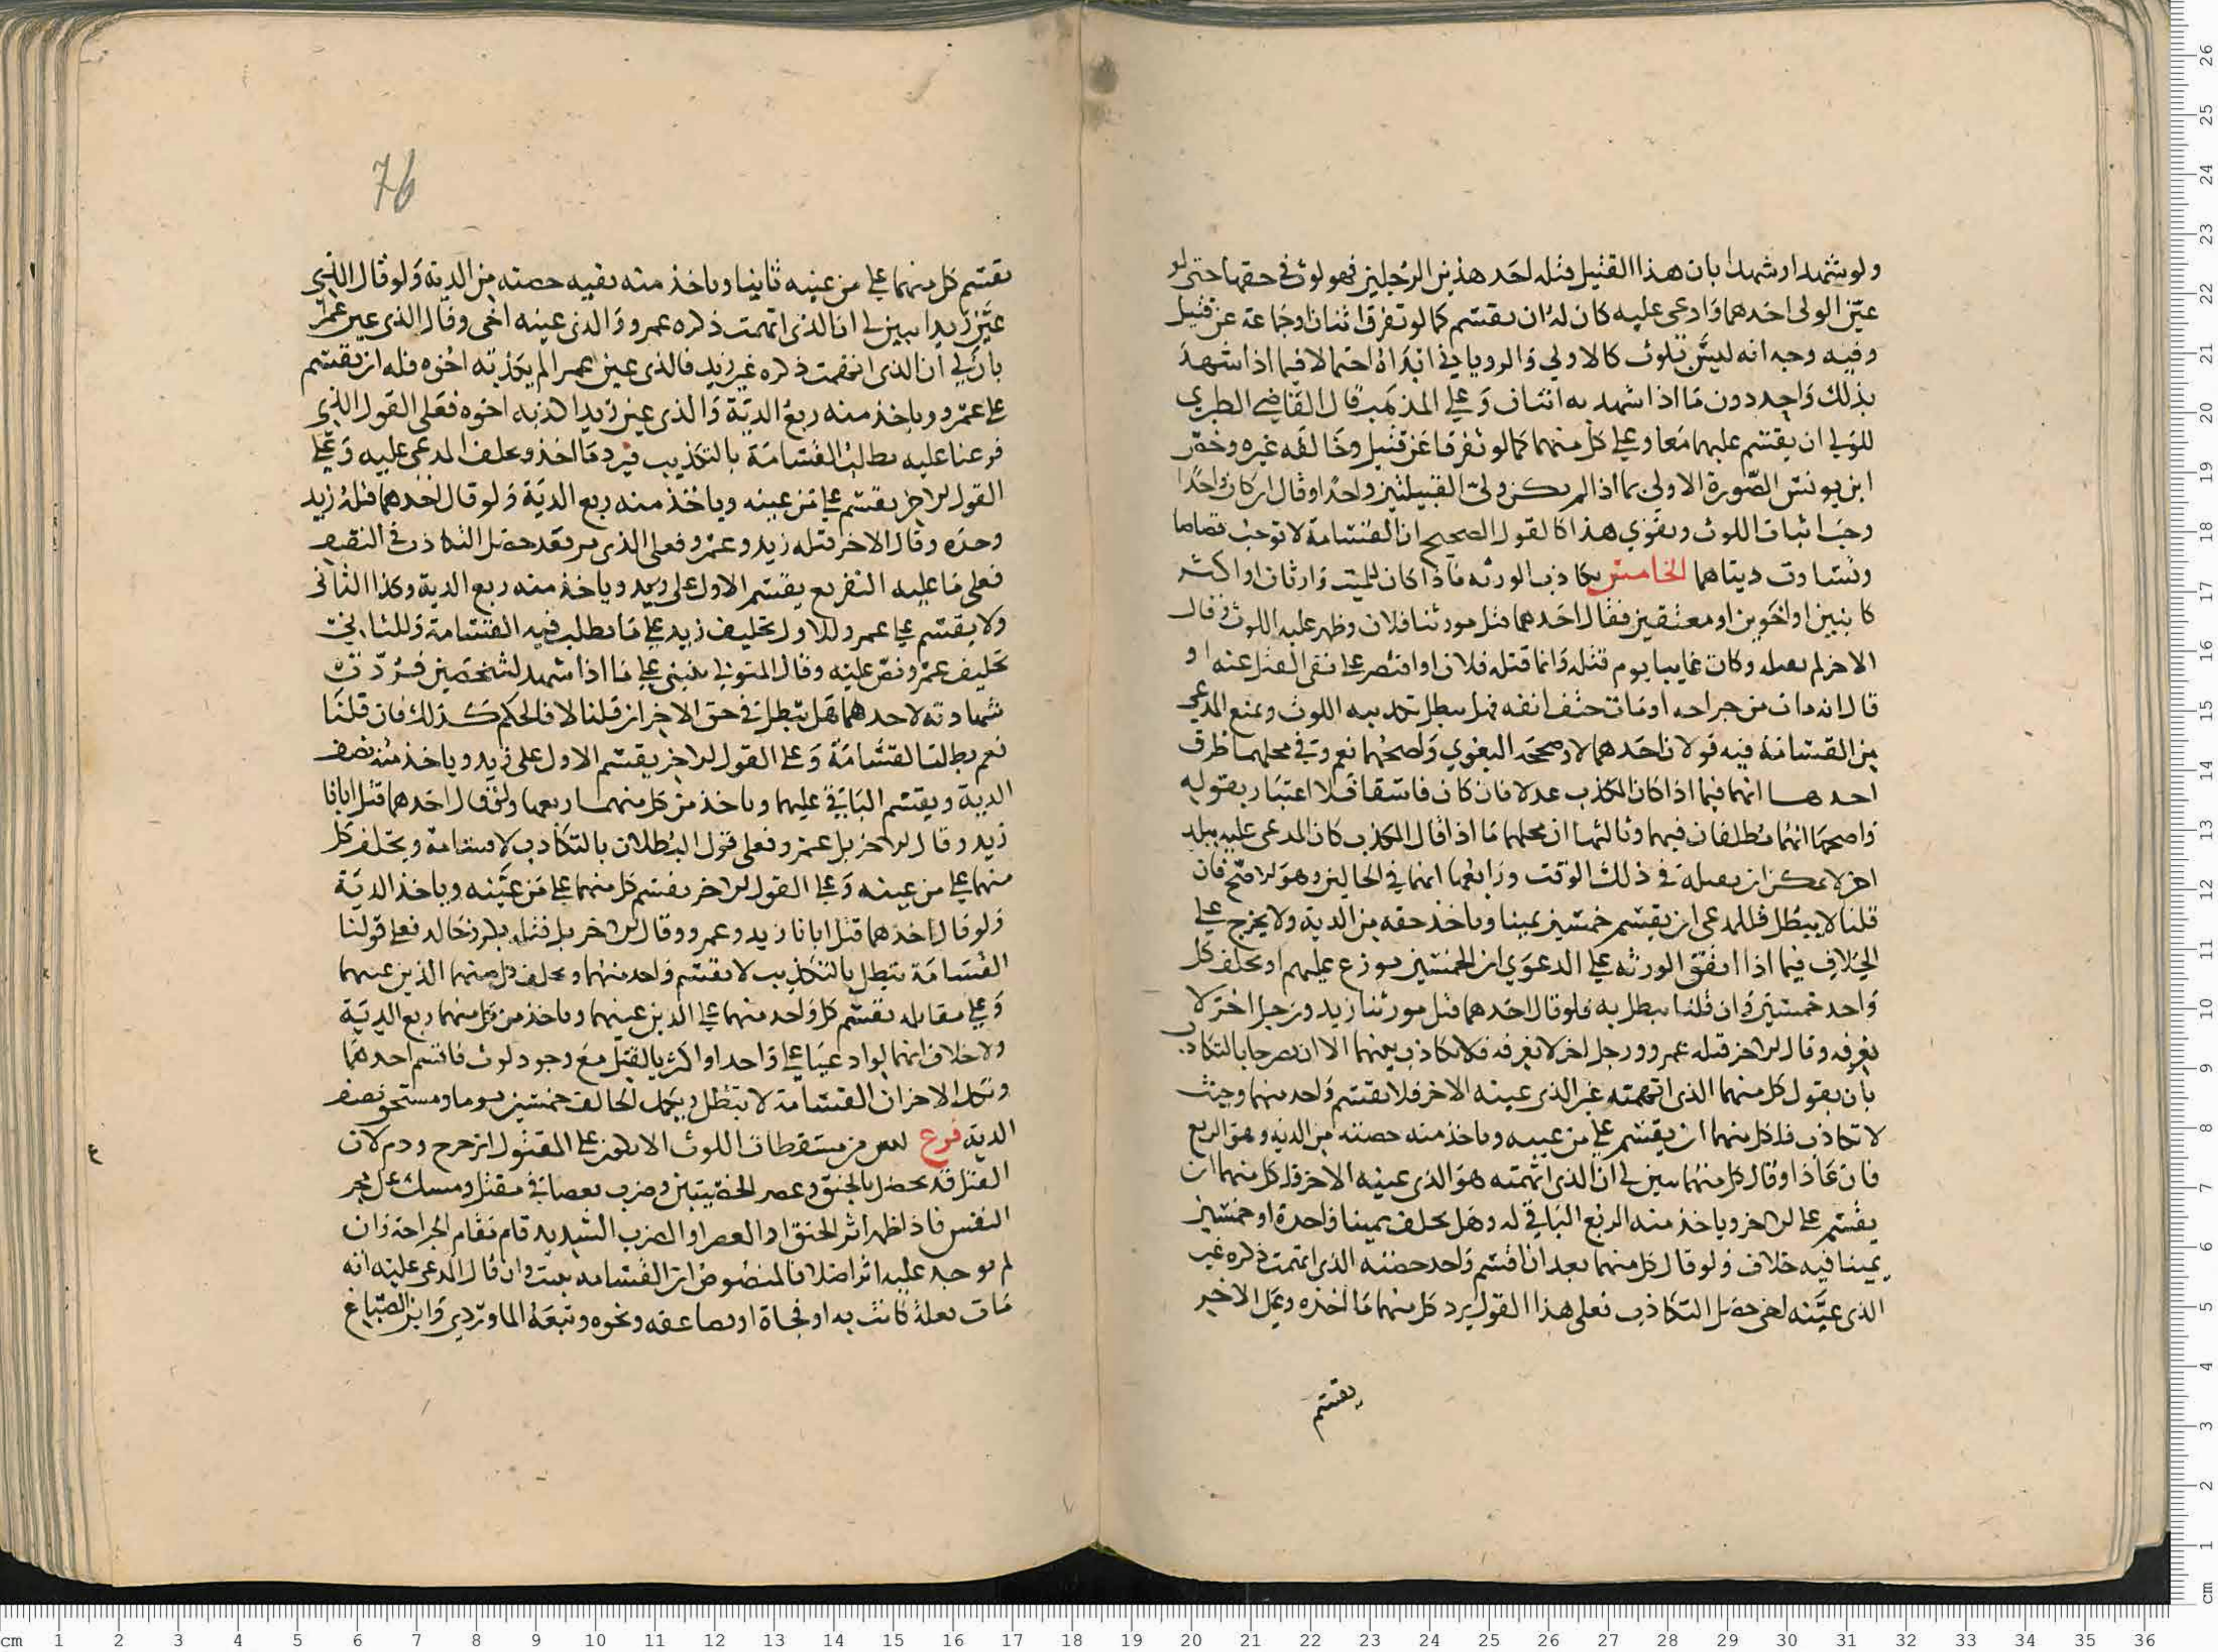 ولو شهد او شهدا بان هذا القتيل قتله احد هذين الرجلين فهو لوث في حقهما حتى لو
عين الولي احدهما وادعى عليه كان له ان يقسم كما لو تفرق اثنان او جماعة عن قتيل
وفيه وجه انه ليس بلوث كالاولي والروياني ابداه احتمالا فيما اذا شهد
بذلك واحد دون ما اذا شهد به اثنان وعلى المذهب قال القاضي الطبري
للولي ان يقسم عليهما معا وعلى كل منهما كما لو تفرقا عن قتيل وخالفه غيره وخص
ابن يونس الصورة الاولى بما اذا لم يكن ولي القتيلين واحدا وقال ان كان واحدا
وجب اثبات اللوث ويقوي هذا كالقول الصحيح ان القسامة لا توجب قصاصا
وتساوت ديتاهما الخامس تكاذب الورثه فاذا كان للميت وارثان او اكثر
كابنين او اخوين او معتقين فقال احدهما قتل مورثنا فلان وظهر عليه اللوث فقال
الاخر لم يقتله وكان غايبا يوم قتله وانما قتله فلان او اقتصر على نفي القتل عنه او
قال انه مات من جراحه او مات حتف انفه فهل يبطل تكذيبه اللوث ويمنع المدعي
من القسامة فيه قولان احدهما لا وصححه البغوي واصحهما نعم وفي محلهما طرق
احدها انهما فيما اذا كان المكذب عدلا فان كان فاسقا فلا اعتبار بقوله
واصحها انهما مطلقان فيهما وثالثها ان محلهما ما اذا قال المكذب كان المدعى عليه ببلد
اخر لا يمكن ان يصله في ذلك الوقت ورابعها انهما في الحالين وهو الاصح فان
قلنا لا يبطل فللمدعي ان يقسم خمسين يمينا وياخذ حقه من الدية ولا يخرج على
الخلاف فيما اذا اتفق الورثه على الدعوى ان الخمسين توزع عليهم او يحلف كل
واحد خمسين وان قلنا يبطل به فلو قال احدهما قتل مورثنا زيد ورجل اخر لا
نعرفه وقال الاخر قتله عمرو ورجل اخر لا نعرفه فلا تكاذب بينهما الا ان يصرحا بالتكاذب
بان يقول كل منهما الذي اتهمته غير الذي عينه الاخر فلا يقسم واحد منهما وحيث
لا تكاذب فلكل منهما ان يقسم على من عينه وياخذ منه حصته من الدية وهو الربع
فان عادا وقال كل منهما تبين لي ان الذي اتهمته هو الذي عينه الاخر فلكل منهما ان
يقسم على الاخر وياخذ منه الربع الباقي له وهل يحلف يمينا واحدة او خمسين
يمينا فيه خلاف ولو قال كل منهما بعد ان اقسم واحد حصته الذي اتهمت ذكره غير
الذي عينه اخي حصل التكاذب فعلى هذا القول يرد كل منهما ما اخذه وعلى الاخر
يقسم
76
يقسم كل منهما على من عينه ثانيا وياخذ منه بقيه حصته من الدية ولو قال الذي
عين زيدا تبين لي ان الذي اتهمت ذكره عمرو والذي عينه اخي وقال الذي عين عمرا
بان لي ان الذي اتهمت ذكره غير زيد فالذي عين عمرا لم يكذبه اخوه فله ان يقسم
على عمرو وياخذ منه ربع الدية والذي عين زيدا كذبه اخوه فعلى القول الذي
فرعنا عليه بطلت القسامة بالتكذيب فيرد ما اخذ ويحلف المدعى عليه وعلى
القول الاخر يقسم على من عينه وياخذ منه ربع الدية ولو قال احدهما قتله زيد
وحده وقال الاخر قتله زيد وعمرو فعلى الذي مر فقد حصل التكاذب في النصف
فعلى ما عليه التفريع يقسم الاول على زيد وياخذ منه ربع الدية وكذا الثاني
ولا يقسم على عمرو وللاول تحليف زيد على ما بطلت فيه القسامة وللثاني
تحليف عمرو نص عليه وقال المتولي ينبني على ما اذا شهد لشخصين فردت
شهادته لاحدهما هل تبطل في حق الاخر ان قلنا لا فالحكم كذلك فان قلنا
نعم بطلت القسامة وعلى القول الاخر يقسم الاول على زيد وياخذ منه نصف
الدية ويقسم الباقي عليهما وياخذ من كل منهما ربعها ولو قال احدهما قتل ابانا
زيد وقال الاخر بل عمرو فعلى قول البطلان بالتكاذب لا قسامة ويحلف كل
منهما على من عينه وعلى القول الاخر يقسم كل منهما على من عينه وياخذ الدية
ولو قال احدهما قتل ابانا زيد وعمرو وقال الاخر بل قتله بكر وخالد فعلى قولنا
القسامة تبطل بالتكذيب لا يقسم واحد منهما ويحلف كل منهما الذين عينهما
وعلى مقابله يقسم كل واحد منهما على الذين عينهما وياخذ من كل منهما ربع الدية
ولا خلاف انهما لو ادعيا على واحد او اكثر بالقتل مع وجود لوث فاقسم احدهما
ونكل الاخر ان القسامة لا تبطل ويكمل الحالف خمسين يوما ومستحق نصف
الدية فرع ليس من مسقطات اللوث الا يكون على المقتول اثر جرح ودم لان
القتل قد يحصل بالخنق وعصر الخصيتين وضرب بعصا في مقتل ومسك على مجر
النفس فاذا ظهر اثر الخنق او العصر او الضرب الشديد قام مقام الجراحة وان
لم يوجد عليه اثر اصلا فالمنصوص ان القسامه تثبت وان قال المدعى عليه انه
مات بعلة كانت به او فجاة او بصاعقه ونحوه وتبعه الماوردي وابن الصباغ